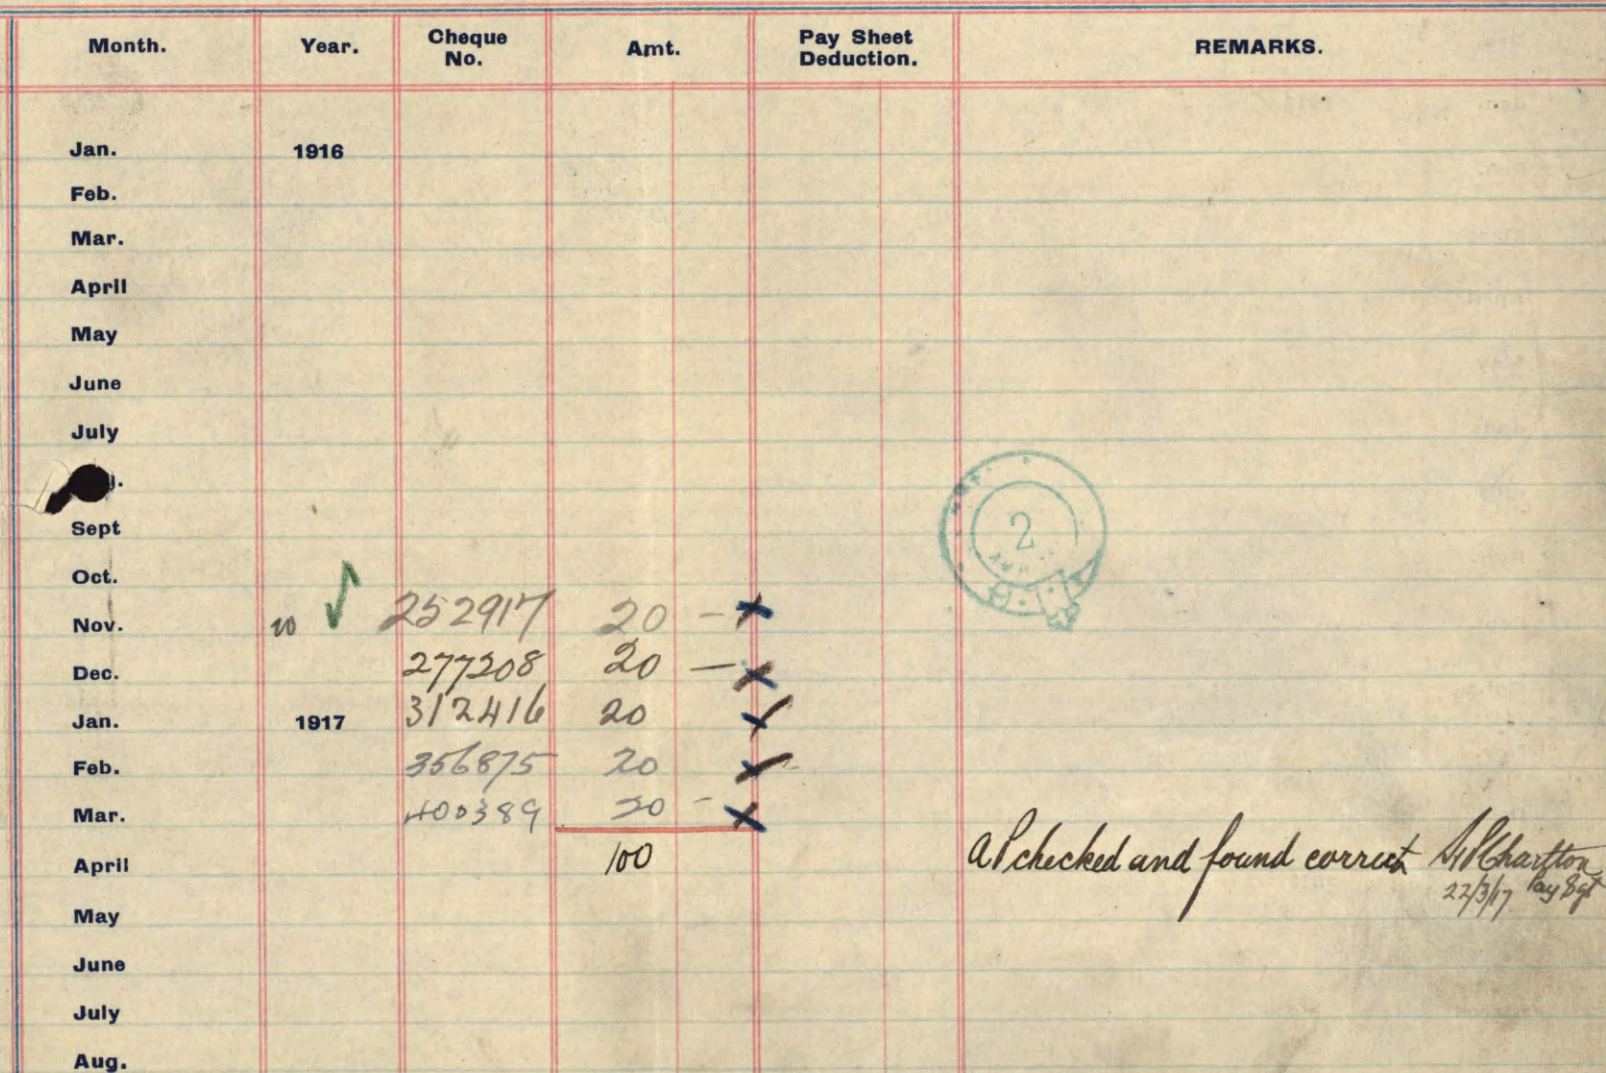 Month. Year. Cheque No. Amt. Pay Sheet Deduction. REMARKS.
Jan. 1916
Feb.
Mar.
April
May
June
July
Sept
Oct.
Nov. 252917 20 -
Dec. 277208 20 —
Jan. 1917 312416 20
Feb. 356875 20
Mar. 400389 20 -
April 100 AP checked and found correct
22/3/17 Pay Sgt
May
June
July
Aug.
2